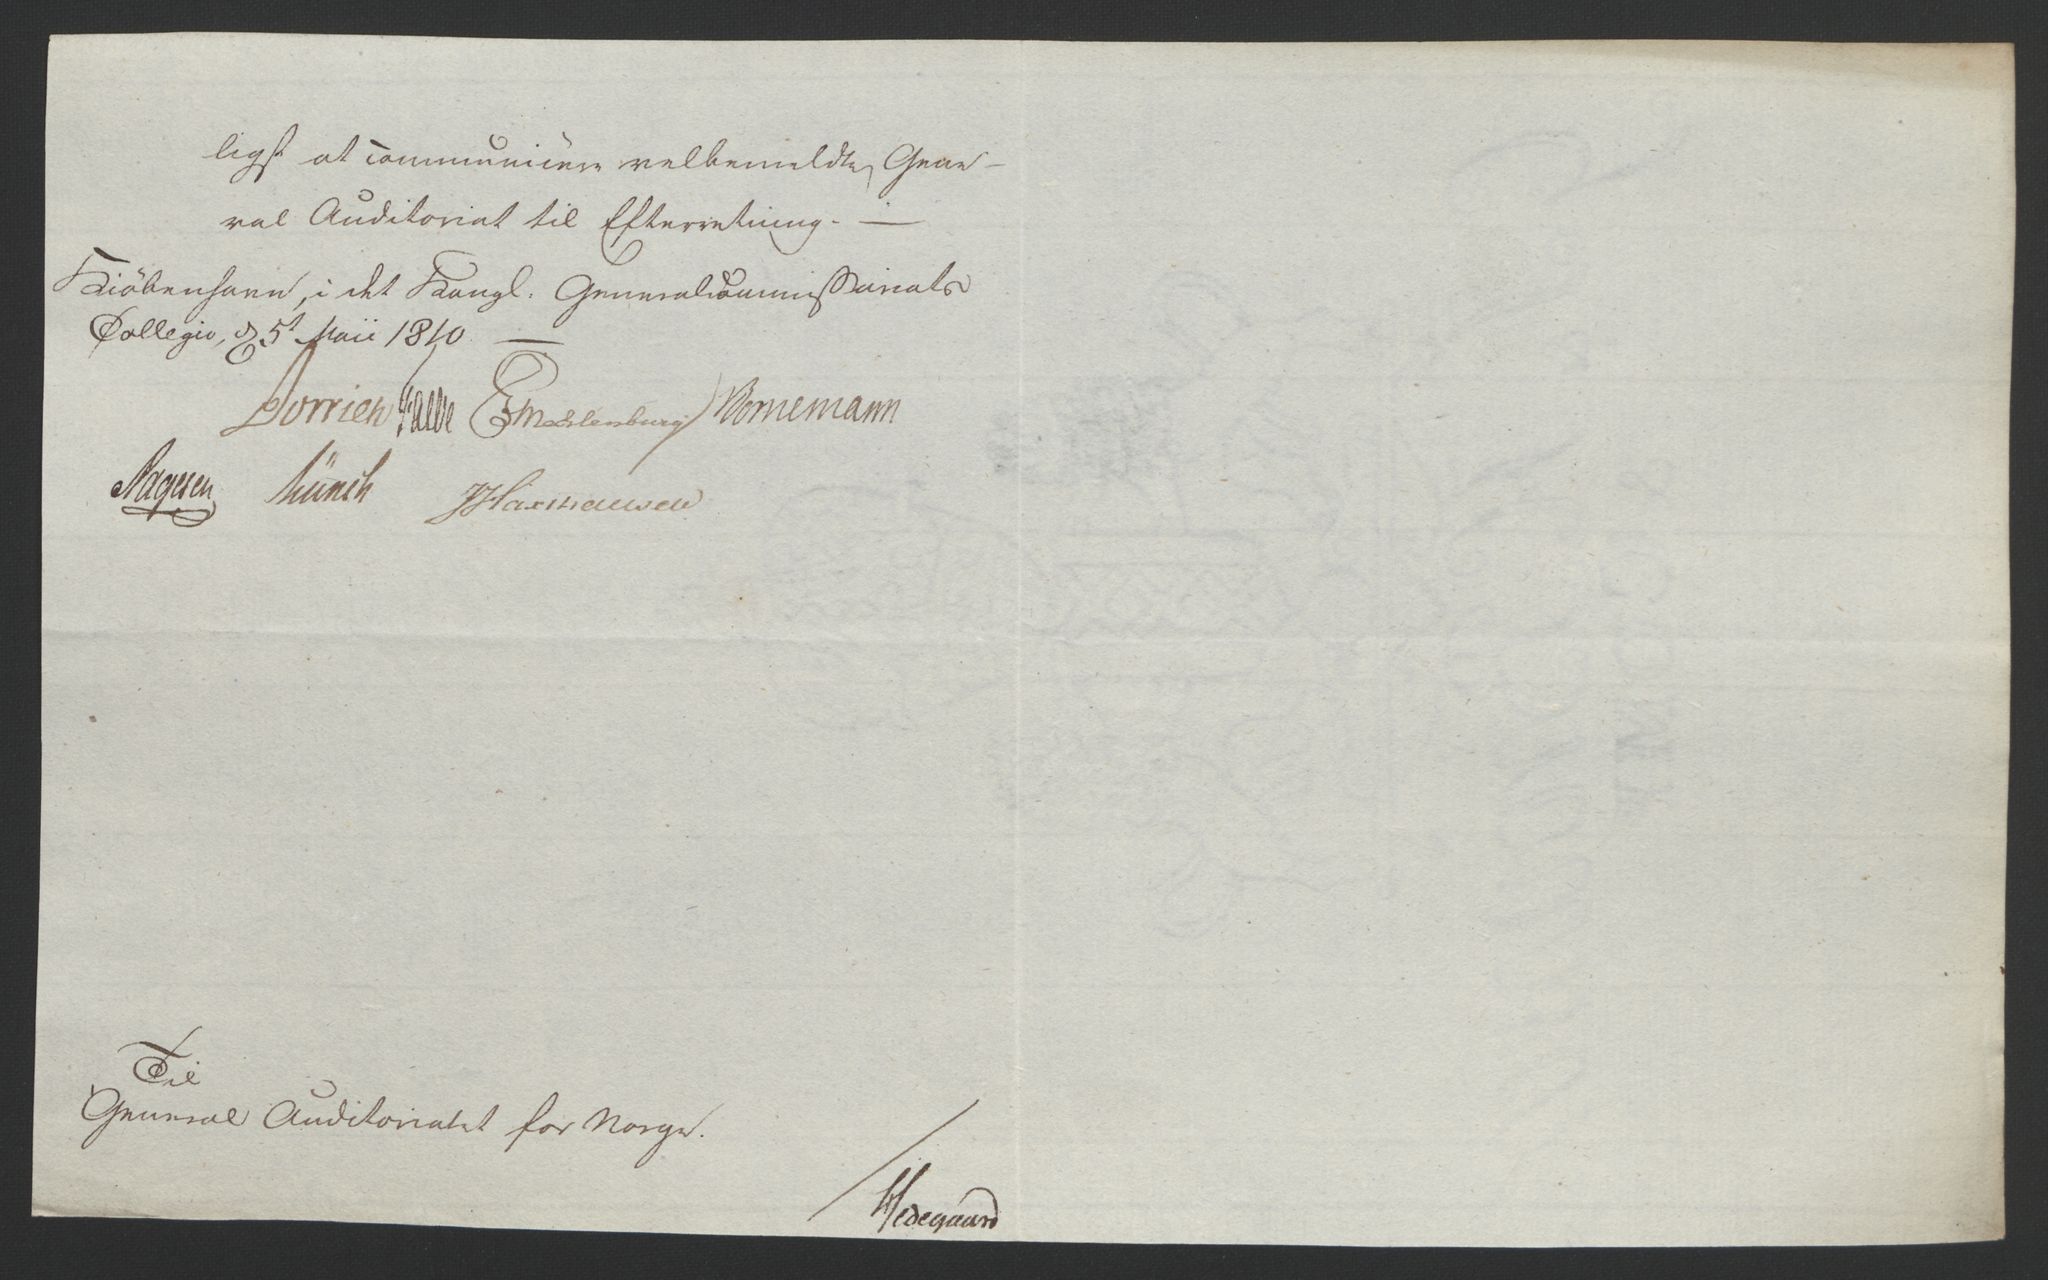 ligst at communicere velbemeldte Gene-
ral Auditoriat til Efterretning. —
Kiöbenhavn, i det Kongl. Generalcommissariats
Collegio, d 5t Maii 1810 —
Dorrien Falbe Mechlenburg Bornemann
Aagesen Münch Haxthausen
Til
General Auditoriatet for Norge.
Hedegaard